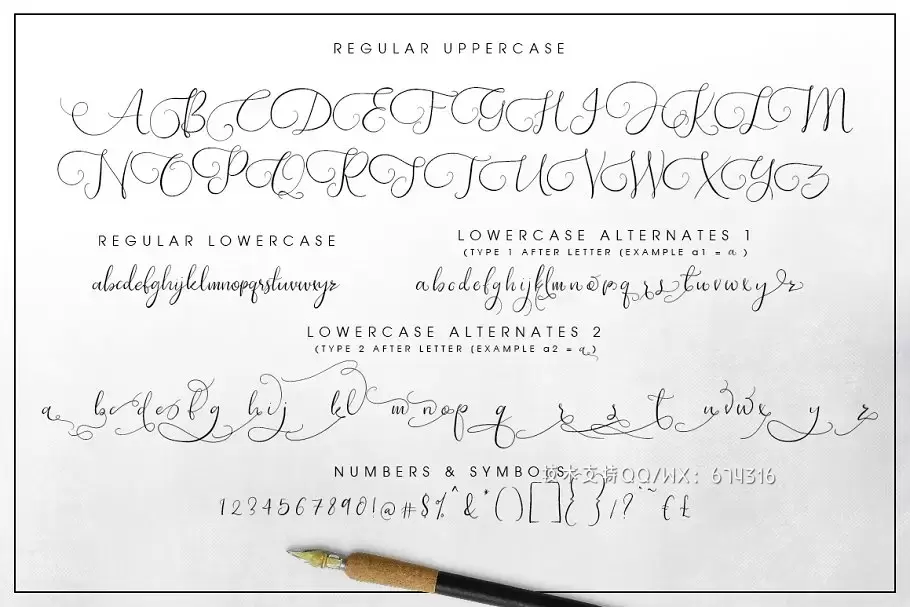 REGULAR UPPERCASE
ABCDEFGHIJKLM
NOPQRSTUVWXYZ
REGULAR LOWERCASE
abcdefghijklmnopqrstuvwxyz
LOWERCASE ALTERNATES 1
(TYPE 1 AFTER LETTER (EXAMPLE a1 = a )
abcdefghijklmnopqrstuvwxyz
LOWERCASE ALTERNATES 2
(TYPE 2 AFTER LETTER (EXAMPLE a2 = a)
a bcdefg hij kl mnop q r s t uvwx y z
NUMBERS & SYMBOLS
技术支持QQ/WX: 674316
1234567890!@#$%^&*()[]{}/?¨~€£